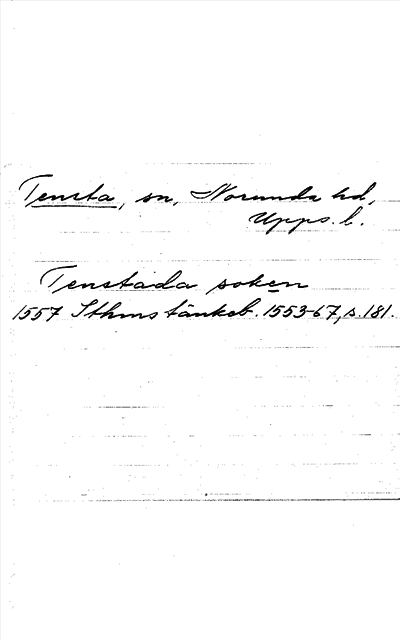 Tensta, sn, Norunda hd,
Upps. l.
Tenstada soken
1557 Sthms tänkeb. 1553-67, s. 181.